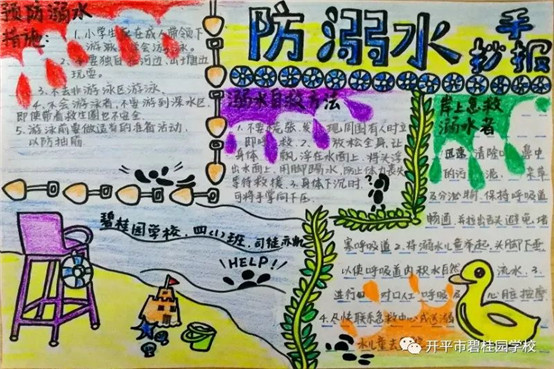 预防溺水
措施:
1.小学生应在成人带领下
游泳,学会游泳。
2.不要独自在河边、山塘边
玩耍。
3.不去非游泳区游泳。
4.不会游泳者,不要游到深水区,
即使带着救生圈也不安全。
5.游泳前要做适当的准备活动,
以防抽筋
防溺水
手抄报
溺水自救方法
1.不要慌张,发现周围有人时立
即呼救。2.放松全身,让
身体飘浮在水面上,将头浮
出水面上,用脚踢水,防止体力丧失,
等待救援。3.身体下沉时,
可将手掌向下压
岸上急救
溺水者
1.迅速清除口、鼻中
的污泥、杂草
及分泌物,保持呼吸道
畅通,并拉出舌头,避免堵
塞呼吸道2.将溺水儿童举起,头脚下垂
以使呼吸道内积水自然流出。3.
进行口对口人工呼吸及心脏按摩
4.尽快联系急救中心或送溺
水儿童去
碧桂园学校,四(1)班,司徒
HELP!
开平市碧桂园学校